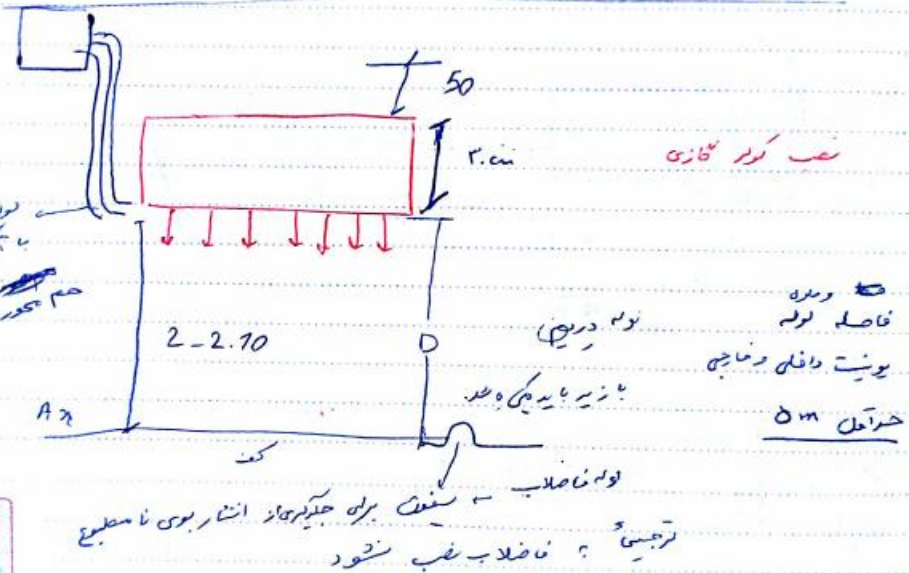 50
۳۰ cm
نصب کولر گازی
هم محور
2-2.10
D
لوله درین
با زیر باید یکی باشد
فاصله لوله
یونیت داخلی و خارجی
حداقل 5m
کف
لوله فاضلاب سیفون برای جلوگیری از انتشار بوی نامطبوع
ترجیحاً به فاضلاب نصب نشود